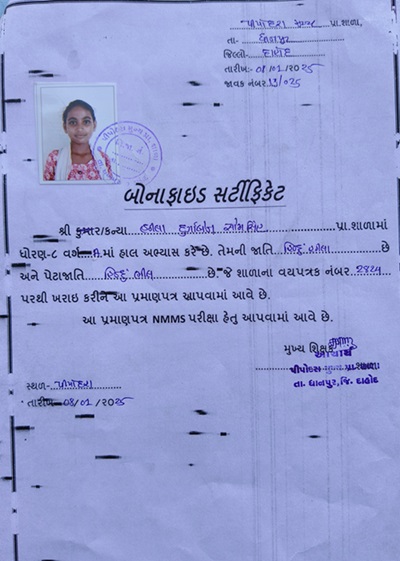 પીપોદરા મુખ્ય પ્રા.શાળા,
તા- ધાનપુર
જિલ્લો- દાહોદ
તારીખ:- 08/01/2025
જાવક નંબર 13/025
બોનાફાઇડ સર્ટીફિકેટ
શ્રી કુમાર/કન્યા પ્રા.શાળામાં
ધોરણ-૮ વર્ગ A માં હાલ અભ્યાસ કરે છે. તેમની જાતિ હિન્દુ છે
અને પેટાજાતિ હિન્દુ ભીલ છે. જે શાળાના વયપત્રક નંબર 2824
પરથી ખરાઇ કરીને આ પ્રમાણપત્ર આપવામાં આવે છે.
આ પ્રમાણપત્ર NMMS પરીક્ષા હેતુ આપવામાં આવે છે.
મુખ્ય શિક્ષક
આચાર્ય
પીપોદરા મુખ્ય પ્રા.શાળા
તા. ધાનપુર, જિ. દાહોદ
સ્થળ- પીપોદરા
તારીખ- 08/01/2025